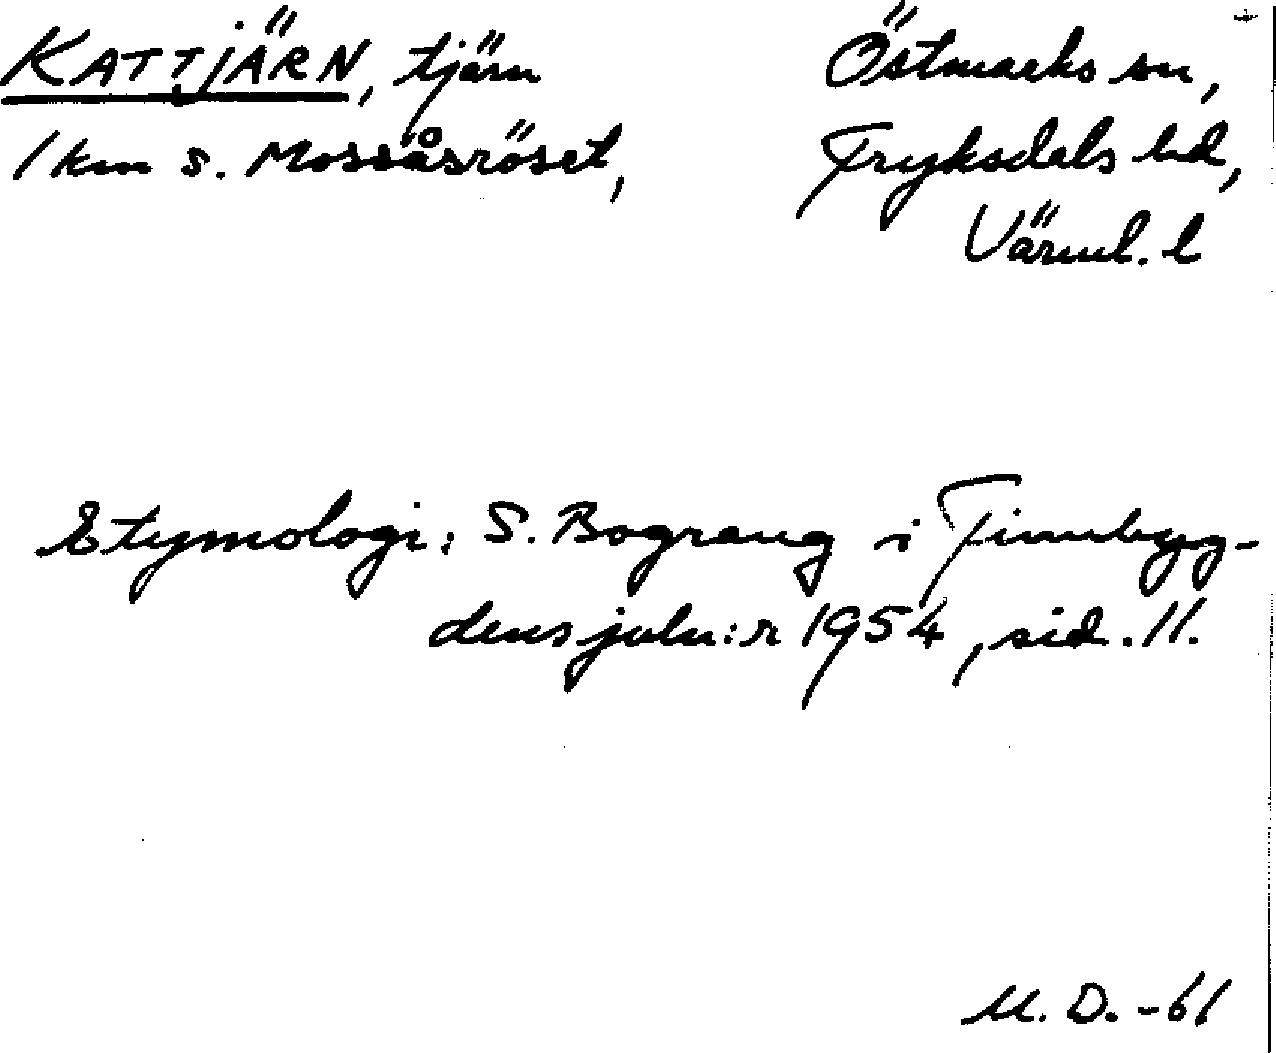 KATTJÄRN, tjärn
1 km s. Mossåsröset,
Östmarks sn,
Fryksdals hd,
Värml. l
Etymologi: S. Bograng i Finnbyg-
dens juln:r 1954, sid. 11.
M. D. -61